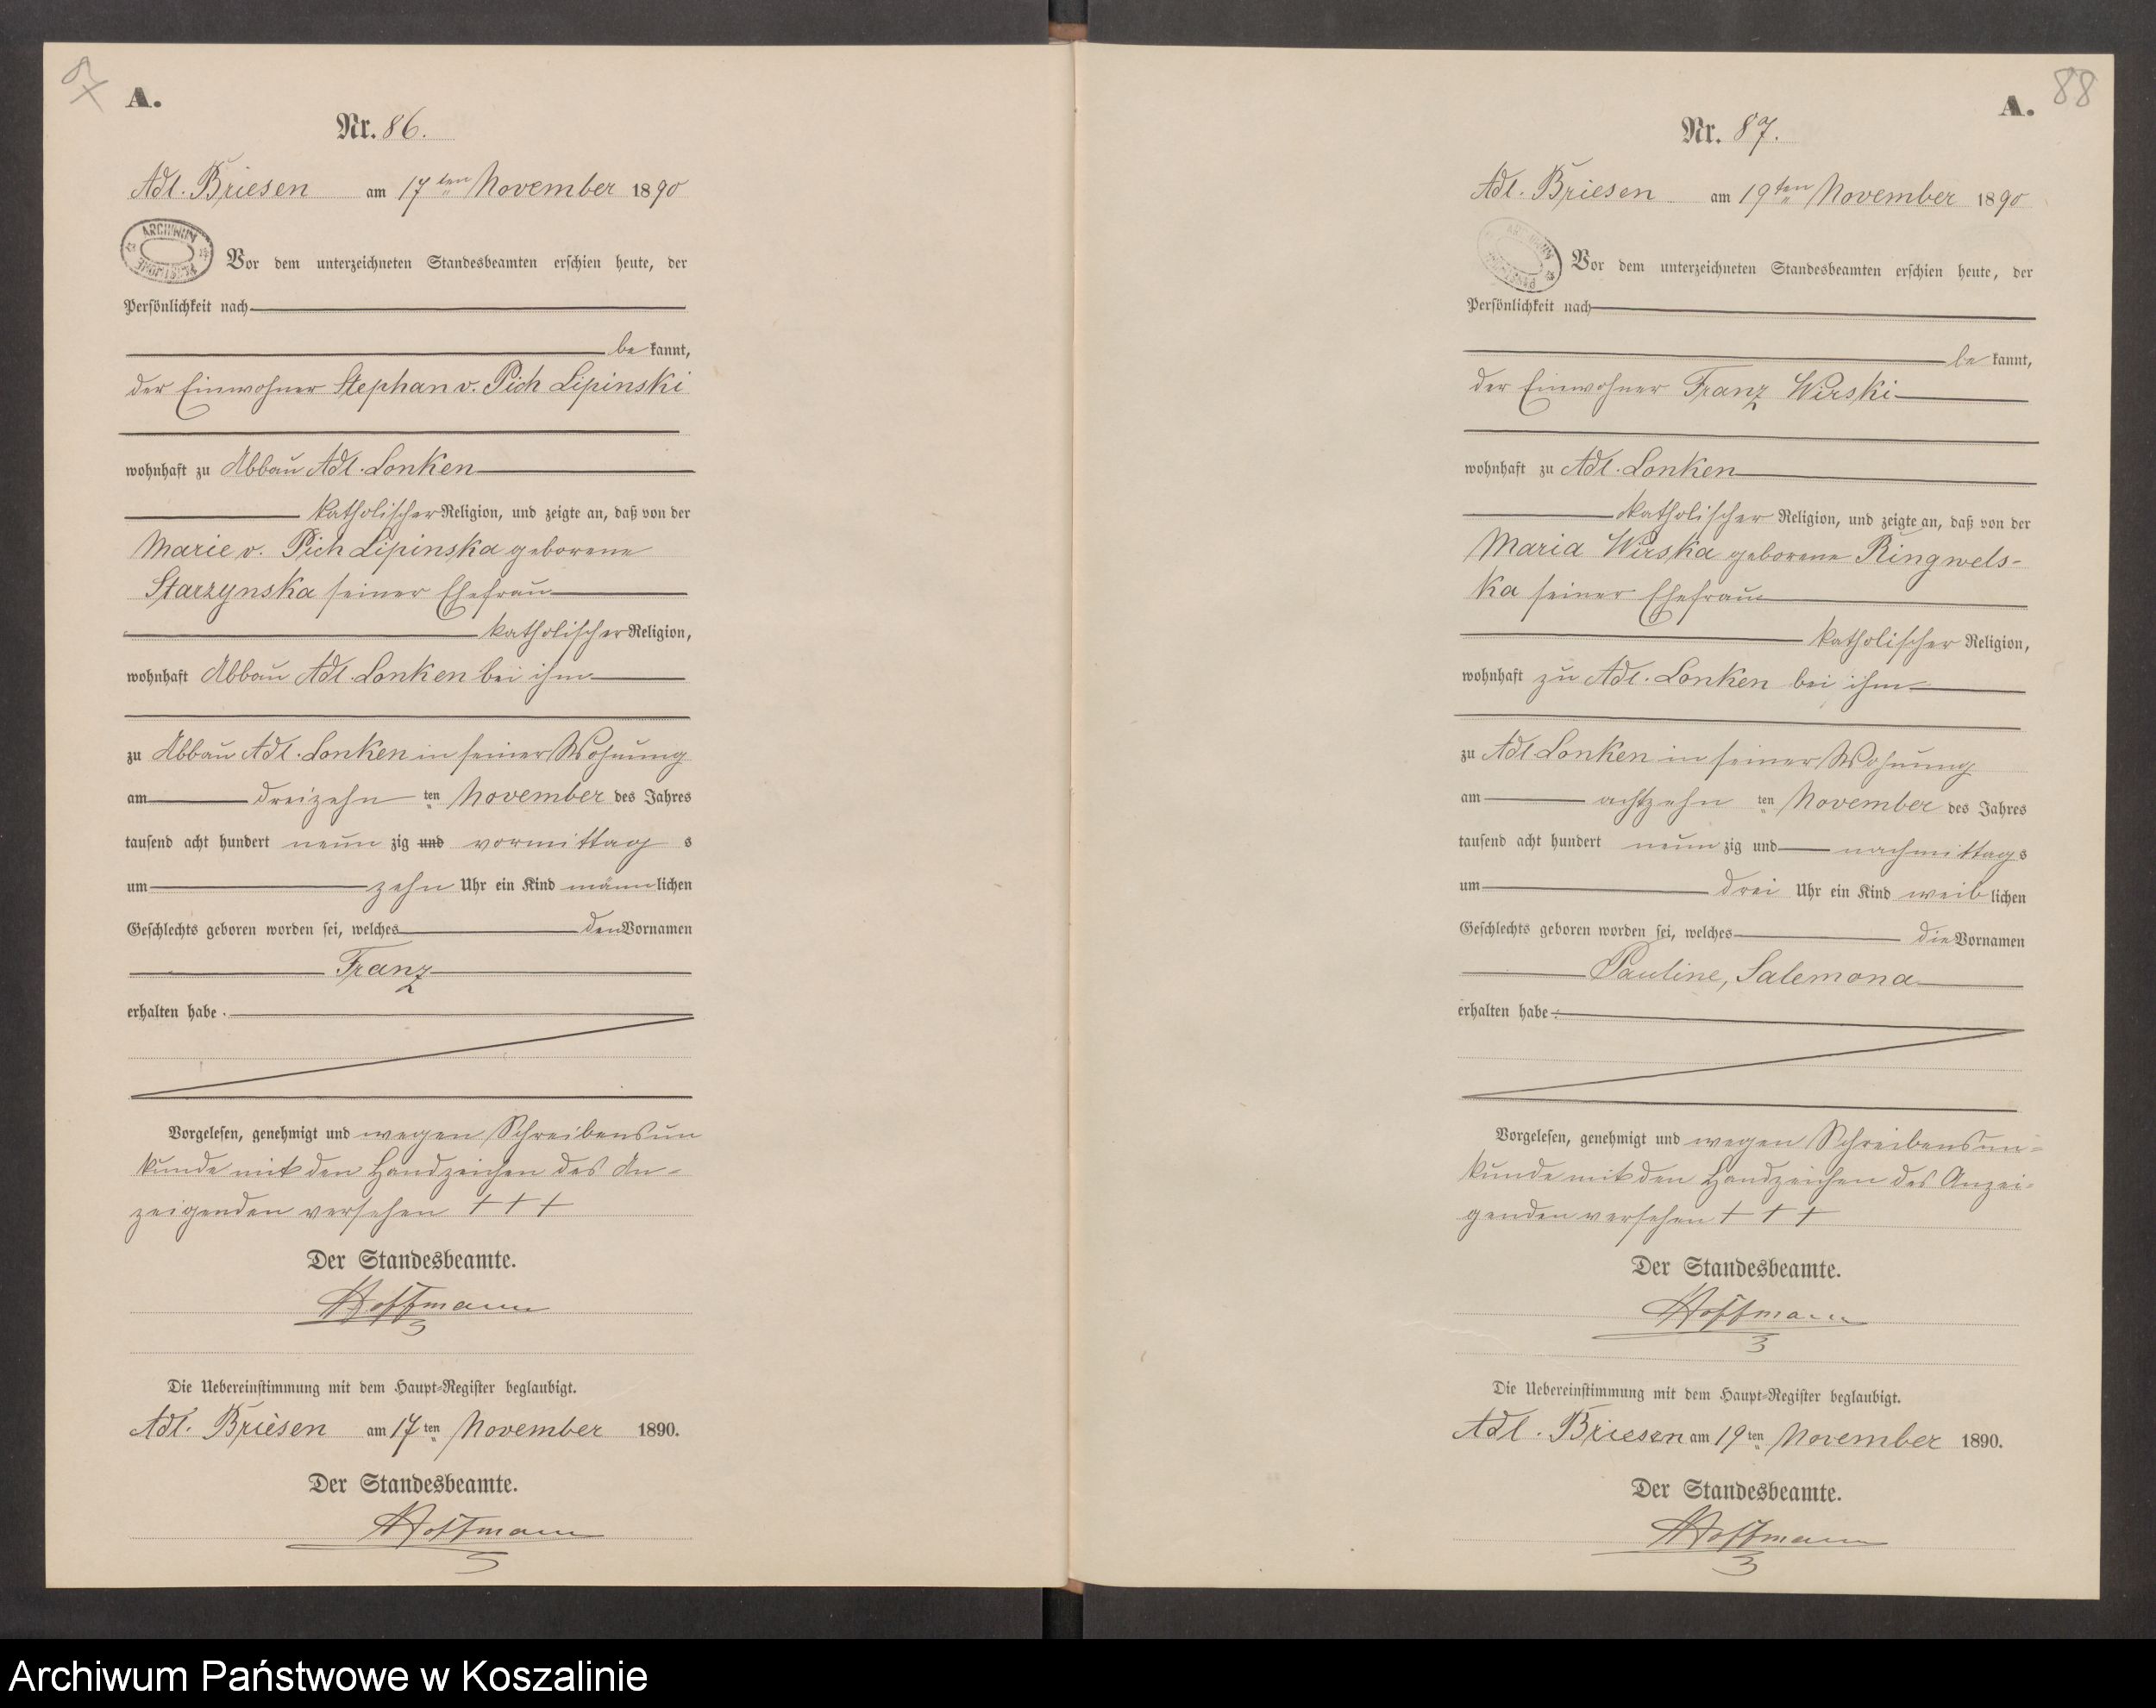 87
A.
Nr. 86.
Adl. Briesen am 17ten November 1890
ARCHIWUM PAŃSTWOWE
Vor dem unterzeichneten Standesbeamten erschien heute, der
Persönlichkeit nach
be kannt,
der Einwohner Stephan v. Pich Lipinski
wohnhaft zu Abbau Adl. Lonken
katholischer Religion, und zeigte an, daß von der
Marie v. Pich Lipinska geborene
Starzynska seiner Ehefrau
katholischer Religion,
wohnhaft Abbau Adl. Lonken bei ihm
zu Abbau Adl. Lonken in seiner Wohnung
am dreizehn ten November des Jahres
tausend acht hundert neun zig und vormittag s
um zehn Uhr ein Kind männ lichen
Geschlechts geboren worden sei, welches den Vornamen
Franz
erhalten habe.
Vorgelesen, genehmigt und wegen Schreibensun
kunde mit den Handzeichen des An-
zeigenden versehen + + +
Der Standesbeamte.
Hoffmann
Die Uebereinstimmung mit dem Haupt-Register beglaubigt.
Adl. Briesen am 17ten November 1890.
Der Standesbeamte.
Hoffmann
88
A.
Nr. 87.
Adl. Briesen am 19ten November 1890
ARCHIWUM PAŃSTWOWE
Vor dem unterzeichneten Standesbeamten erschien heute, der
Persönlichkeit nach
be kannt,
der Einwohner Franz Wirski
wohnhaft zu Adl. Lonken
katholischer Religion, und zeigte an, daß von der
Maria Wirska geborene Ringwels-
ka seiner Ehefrau
katholischer Religion,
wohnhaft zu Adl. Lonken bei ihm
zu Adl Lonken in seiner Wohnung
am achtzehn ten November des Jahres
tausend acht hundert neun zig und nachmittags
um drei Uhr ein Kind weib lichen
Geschlechts geboren worden sei, welches die Vornamen
Pauline, Salemona
erhalten habe.
Vorgelesen, genehmigt und wegen Schreibensun-
kunde mit den Handzeichen des Anzei-
genden versehen + + +
Der Standesbeamte.
Hoffmann
Die Uebereinstimmung mit dem Haupt-Register beglaubigt.
Adl. Briesen am 19ten November 1890.
Der Standesbeamte.
Hoffmann
Archiwum Państwowe w Koszalinie